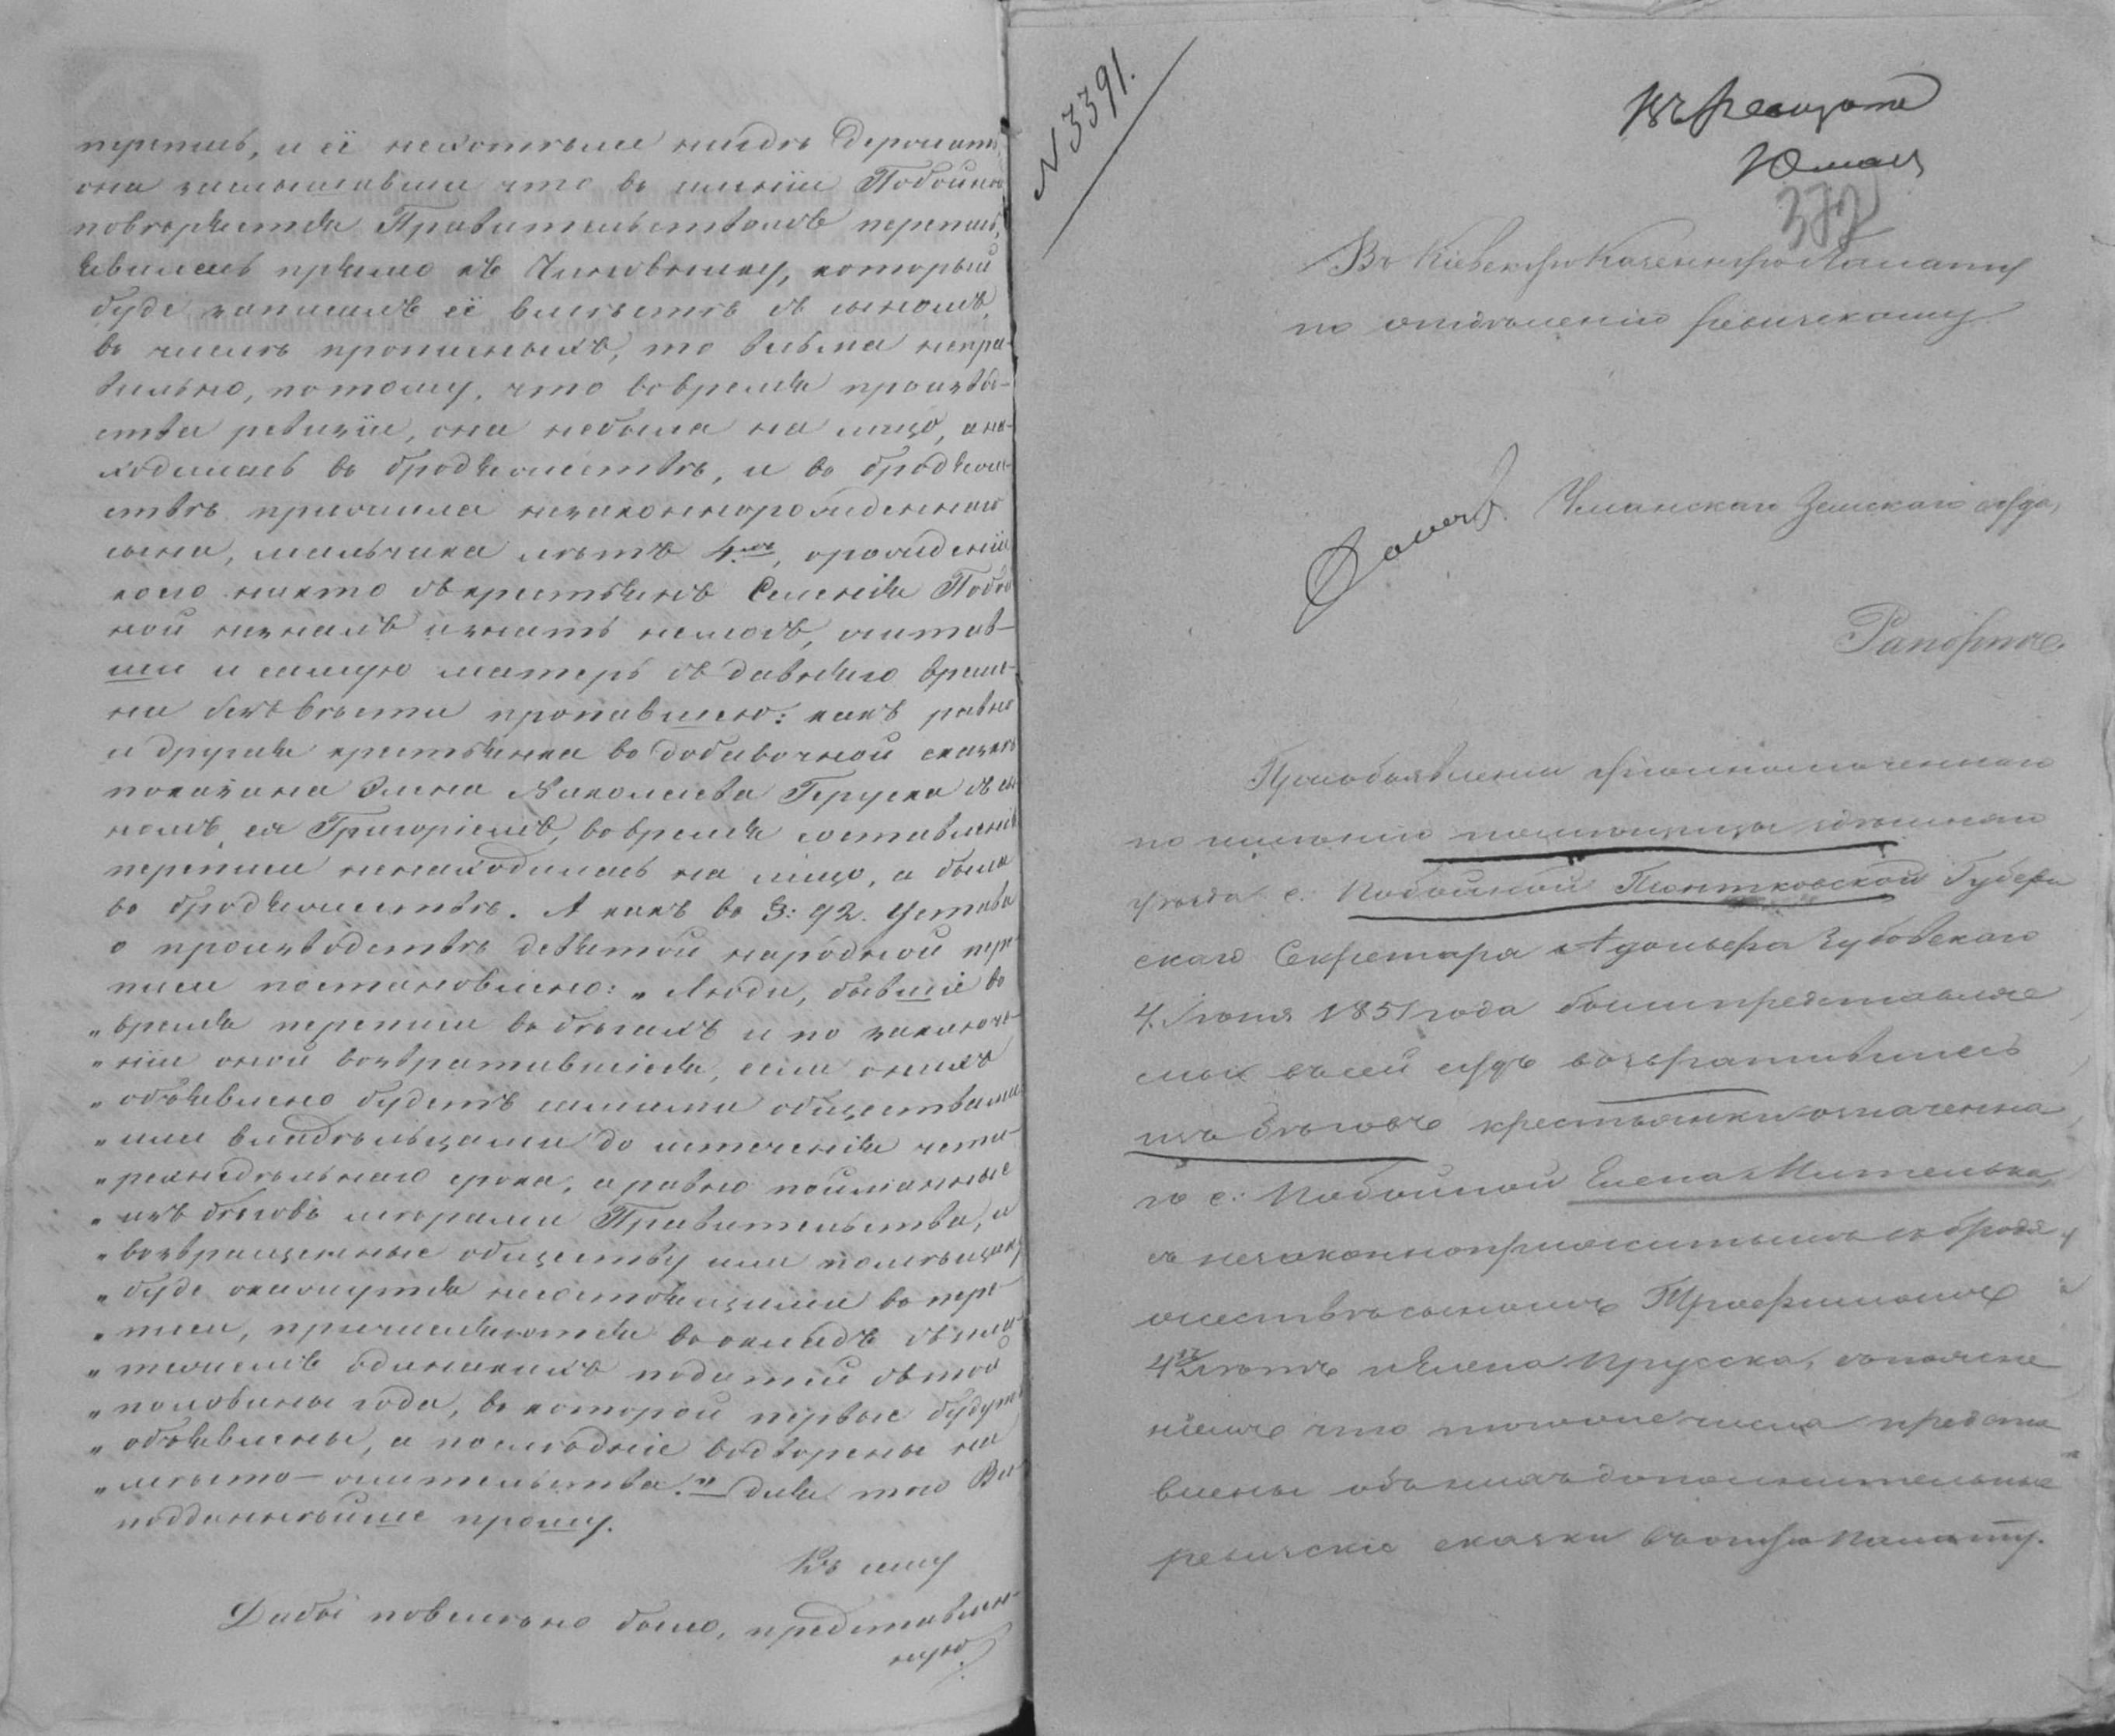 перепись, и её нехотѣли нигдѣ держать,
она услышавши что во имѣніи Побойной
повторяется Правительствомъ перепись,
явилась прямо къ Чиновнику, который
буде записалъ её вмѣстѣ съ сыномъ,
во числѣ прописныхъ, то весьма непра-
вильно, потому, что вовремя производ-
ства ревизіи, она небыла на лицо, а на-
ходилась во бродяжествѣ, и во бродяже-
ствѣ прижила незаконнорожденнаго
сына, мальчика лѣтъ 4хъ, орожденіи
коего никто съ крестьянъ Селенія Побой
ной незналъ и знать немогъ, считав-
ши и самую матерь съ давняго време-
ни безъ вѣсти пропавшею: какъ равно
и другая крестьянка во добавочной сказкѣ
показана Елена Николаева Геруска съ сы
номъ ея Григоріемъ, вовремя составленія
переписи ненаходилась на лицо, а была
во бродяжествѣ. А какъ во §: 92. Устава
о производствѣ девятой народной пере
писи постановлено: „Люди, бывшіе во
„время переписи во бѣгахъ и по заключе-
„ніи оной возвратившіеся, если онихъ
„объявлено будетъ самими обществами
„или владѣльцами до истеченія четы-
„рехнедѣльнаго срока, а равно пойманные
„изъ бѣговъ мѣрами Правительства, и
„возвращенные обществу или помѣщику
„буде окажутся несостоящими во пере-
„писи, причисляются во окладъ съ пла-
„тежемъ одинакихъ податей съ той
„половины года, во которой первые будутъ
„объявлены, а послѣдніе водворены на
„мѣсто-жительства." Для того Все
подданнѣйше прошу.
Къ сему
Дабы повелѣно было, представлен-
ную
N 3391.
372
Въ Кіевскую Казенную Палату
по отдѣленію ревизскому
Уманскаго Земскаго суда,
Рапортъ.
Приобъявленіи уполномоченнаго
по имѣнію помѣщицы здѣшняго
уѣзда с: Побойной Піонтковской Губерн
скаго Секретаря Зубовскаго
4. Іюня 1851 года были представлен
ные въ сей судъ возвратившіесь
изъ бѣговъ крестьянки означенна
го с: Побойной Елена Мителька,
съ незаконноприжитымъ въ бродя
жествѣ сыномъ Трофимомъ
4хъ лѣтъ и Елена Пруска, съ поясне
ніемъ что того же числа предста
влены объ нихъ дополнительные
ревизскіе сказки въ оную Палату.